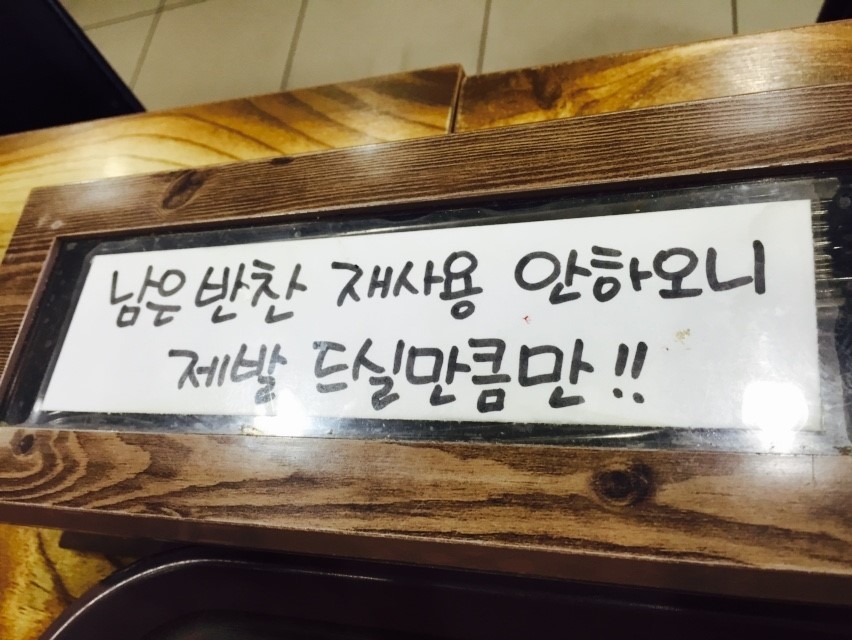 남은 반찬 재사용 안하오니
제발 드실만큼만!!